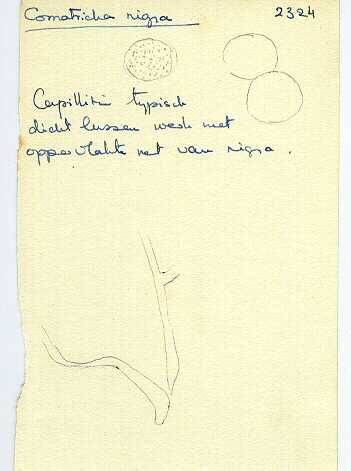 Comatricha nigra 2324
Capillitium typisch
dicht lussen werk met
oppervlakte net van nigra.